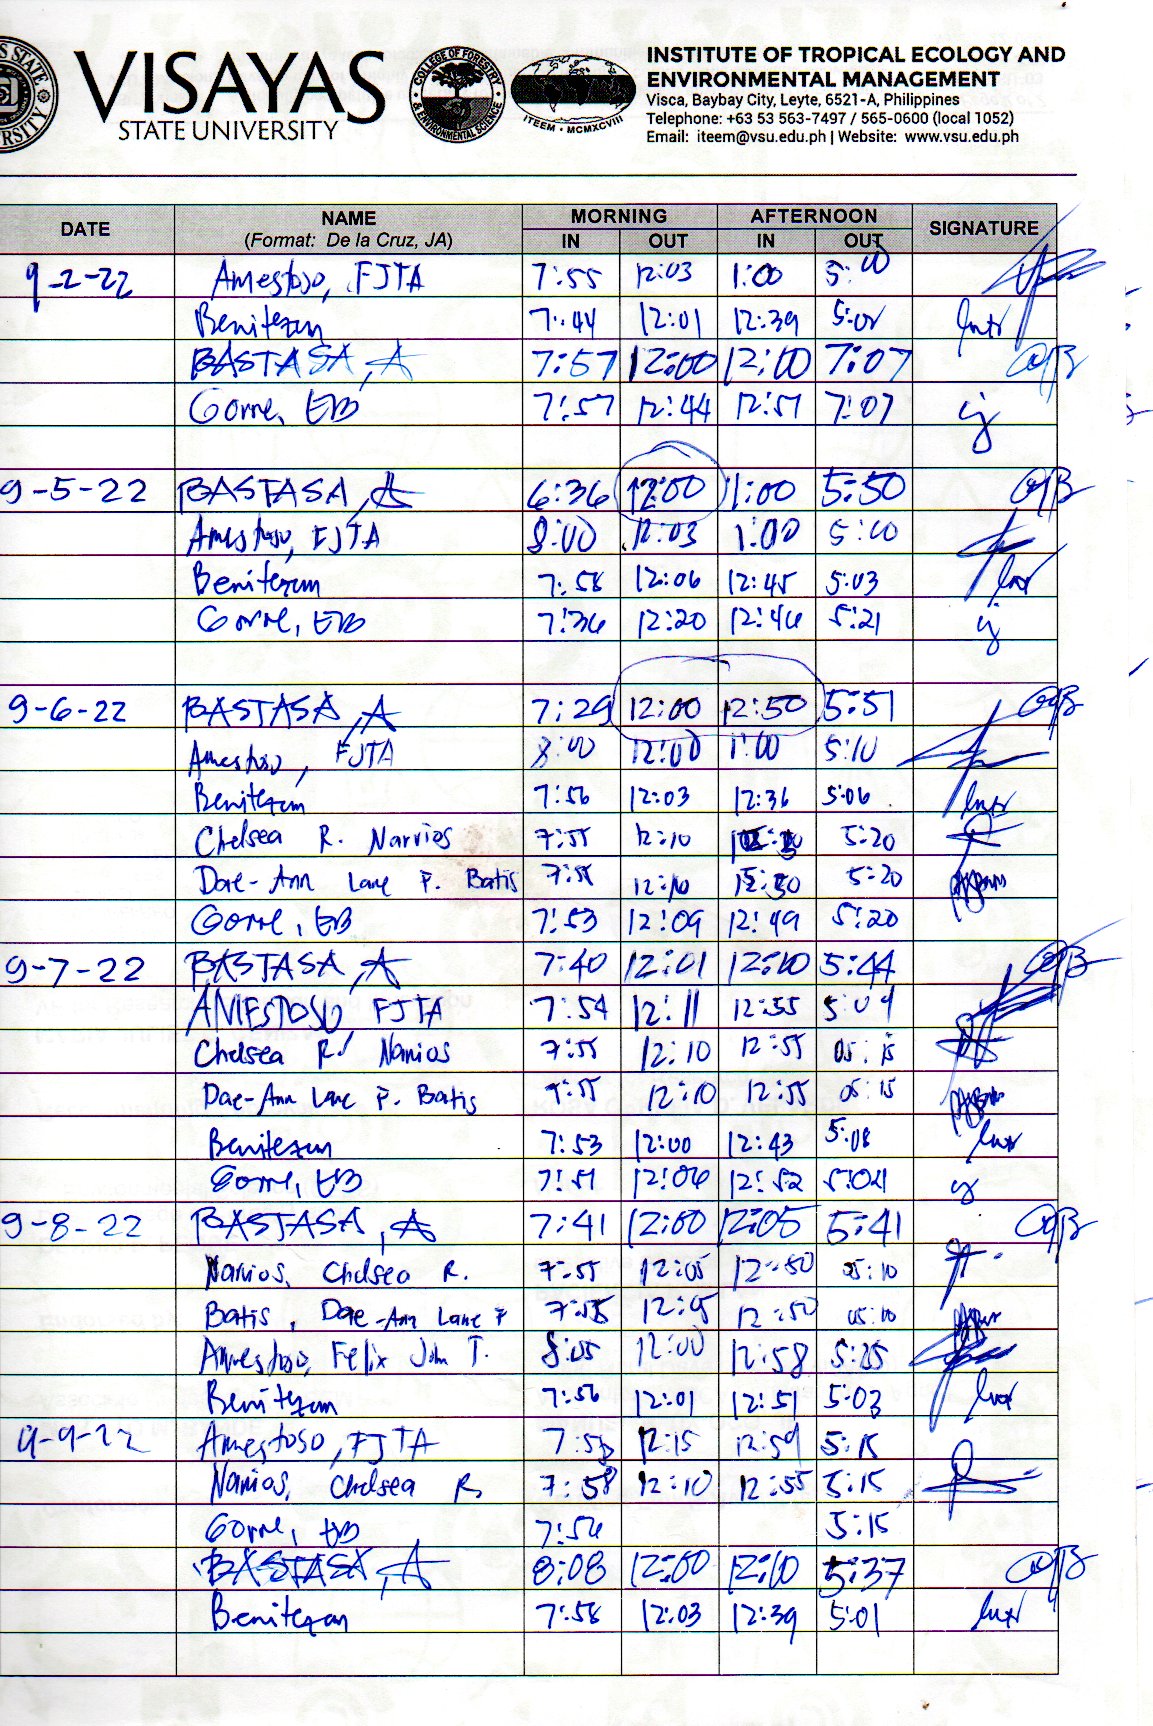 VISAYAS
STATE UNIVERSITY
COLLEGE OF FORESTRY & ENVIRONMENTAL SCIENCE
ITEEM • MCMXCVIII
INSTITUTE OF TROPICAL ECOLOGY AND
ENVIRONMENTAL MANAGEMENT
Visca, Baybay City, Leyte, 6521-A, Philippines
Telephone: +63 53 563-7497 / 565-0600 (local 1052)
Email: iteem@vsu.edu.ph | Website: www.vsu.edu.ph
DATE NAME MORNING AFTERNOON SIGNATURE
(Format: De la Cruz, JA) IN OUT IN OUT
9-2-22 Amestoso, FJTA 7:55 12:03 1:00 5:00
Benitezan 7:44 12:01 12:39 5:02
BASTASA, A 7:57 12:00 12:10 7:07
Gorre, EB 7:57 12:44 12:51 7:07
9-5-22 BASTASA, A 6:36 12:00 1:00 5:50
Amestoso, FJTA 8:00 12:03 1:00 5:00
Benitezan 7:58 12:06 12:45 5:03
Gorre, EB 7:36 12:20 12:46 5:21
9-6-22 BASTASA, A 7:29 12:00 12:50 5:51
Amestoso, FJTA 8:00 12:00 1:00 5:10
Benitezan 7:56 12:03 12:36 5:06
Chelsea R. Narrios 7:55 12:10 5:20
Dae-Ann Lane P. Batis 7:55 12:10 5:20
Gorre, EB 7:53 12:09 12:49 5:20
9-7-22 BASTASA, A 7:40 12:01 12:10 5:44
AMESTOSO, FJTA 7:54 12:11 12:55 5:09
Chelsea R. Narrios 7:55 12:10 12:55 05:15
Dae-Ann Lane P. Batis 7:55 12:10 12:55 05:15
Benitezan 7:53 12:00 12:43 5:08
Gorre, EB 7:51 12:06 12:52 5:04
9-8-22 BASTASA, A 7:41 12:00 12:05 5:41
Narrios, Chelsea R. 7:55 12:05 12:50 05:10
Batis, Dae-Ann Lane P 7:55 12:05 12:50 05:10
Amestoso, Felix John T. 8:05 12:00 12:58 5:25
Benitezan 7:56 12:01 12:51 5:03
9-9-22 Amestoso, FJTA 7:53 12:15 12:59 5:15
Narrios, Chelsea R. 7:58 12:10 12:55 5:15
Gorre, EB 7:56 5:15
BASTASA, A 8:08 12:00 12:10 5:37
Benitezan 7:58 12:03 12:39 5:01